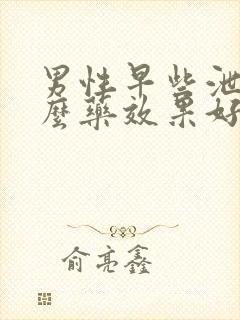 男性早些泄
麼藥效果好
俞亮鑫